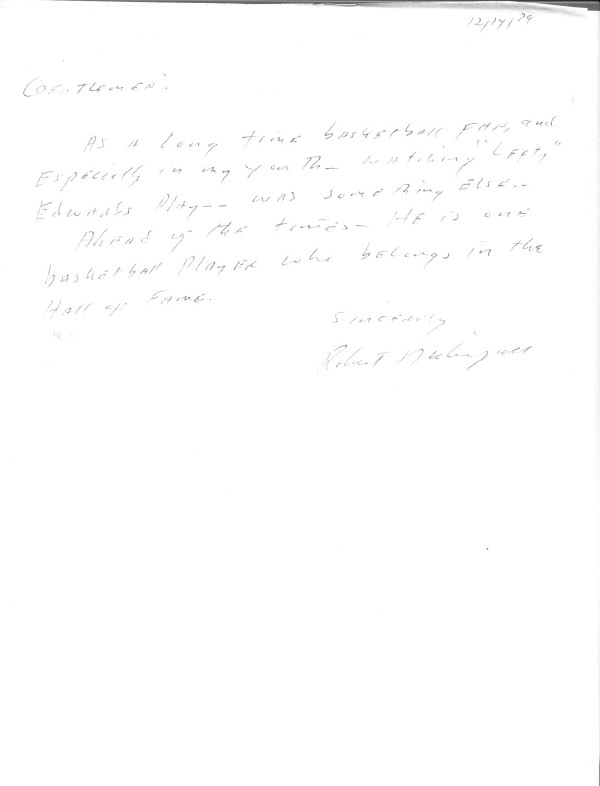 12/17/79
Gentlemen:
As a long time basketball fan, and
Especially in my youth — watching "Lefty"
Edwards Play -- was something Else --
Ahead of the times — He is one
basketball Player who belongs in the
Hall of Fame.
Sincerely
Robert